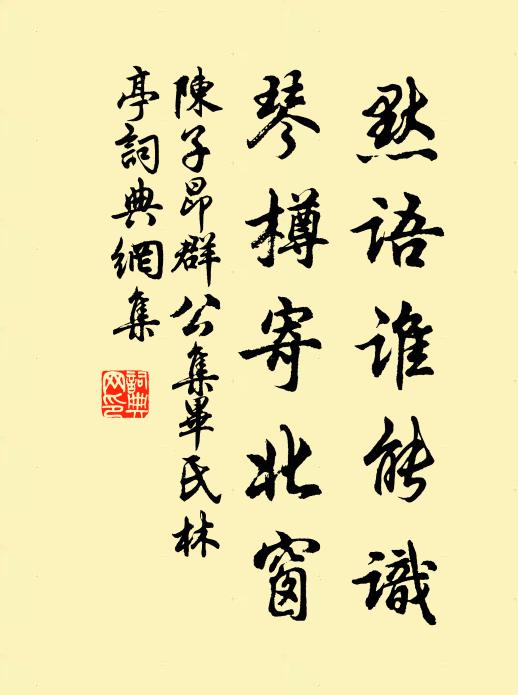 默語誰能識
琴樽寄北窗
陳子昂群公集畢氏林
亭詞典網集
詞典網印